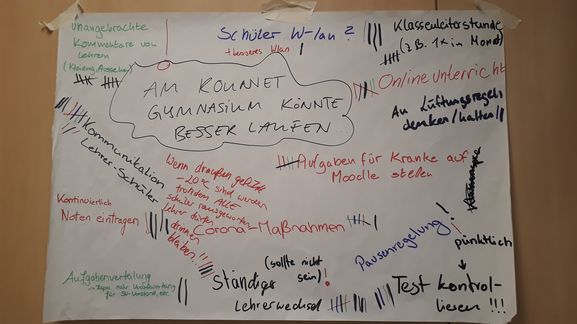 unangebrachte
Kommentare von
Lehrern
Schüler W-lan?
+ besseres Wlan
Klassenleiterstunde
(z.B. 1x im Monat)
AM
GYMNASIUM KÖNNTE
BESSER LAUFEN...
Onlineunterricht
An Lüftungsregeln
denken/halten
Kommunikation
Lehrer-Schüler
Wenn draußen
-20°C sind werden
trotzdem ALLE
Schüler rausgeworfen
Lehrer dürfen
drinnen
bleiben!!!
Aufgaben für Kranke auf
Moodle stellen
Kontinuierlich
Noten eintragen
Corona-Maßnahmen
Pausenregelung!
pünktlich
Aufgabenverteilung
mehr Verantwortung
für
Ständiger
(sollte nicht
sein)!
Lehrerwechsel
Test kontrol-
lieren!!!